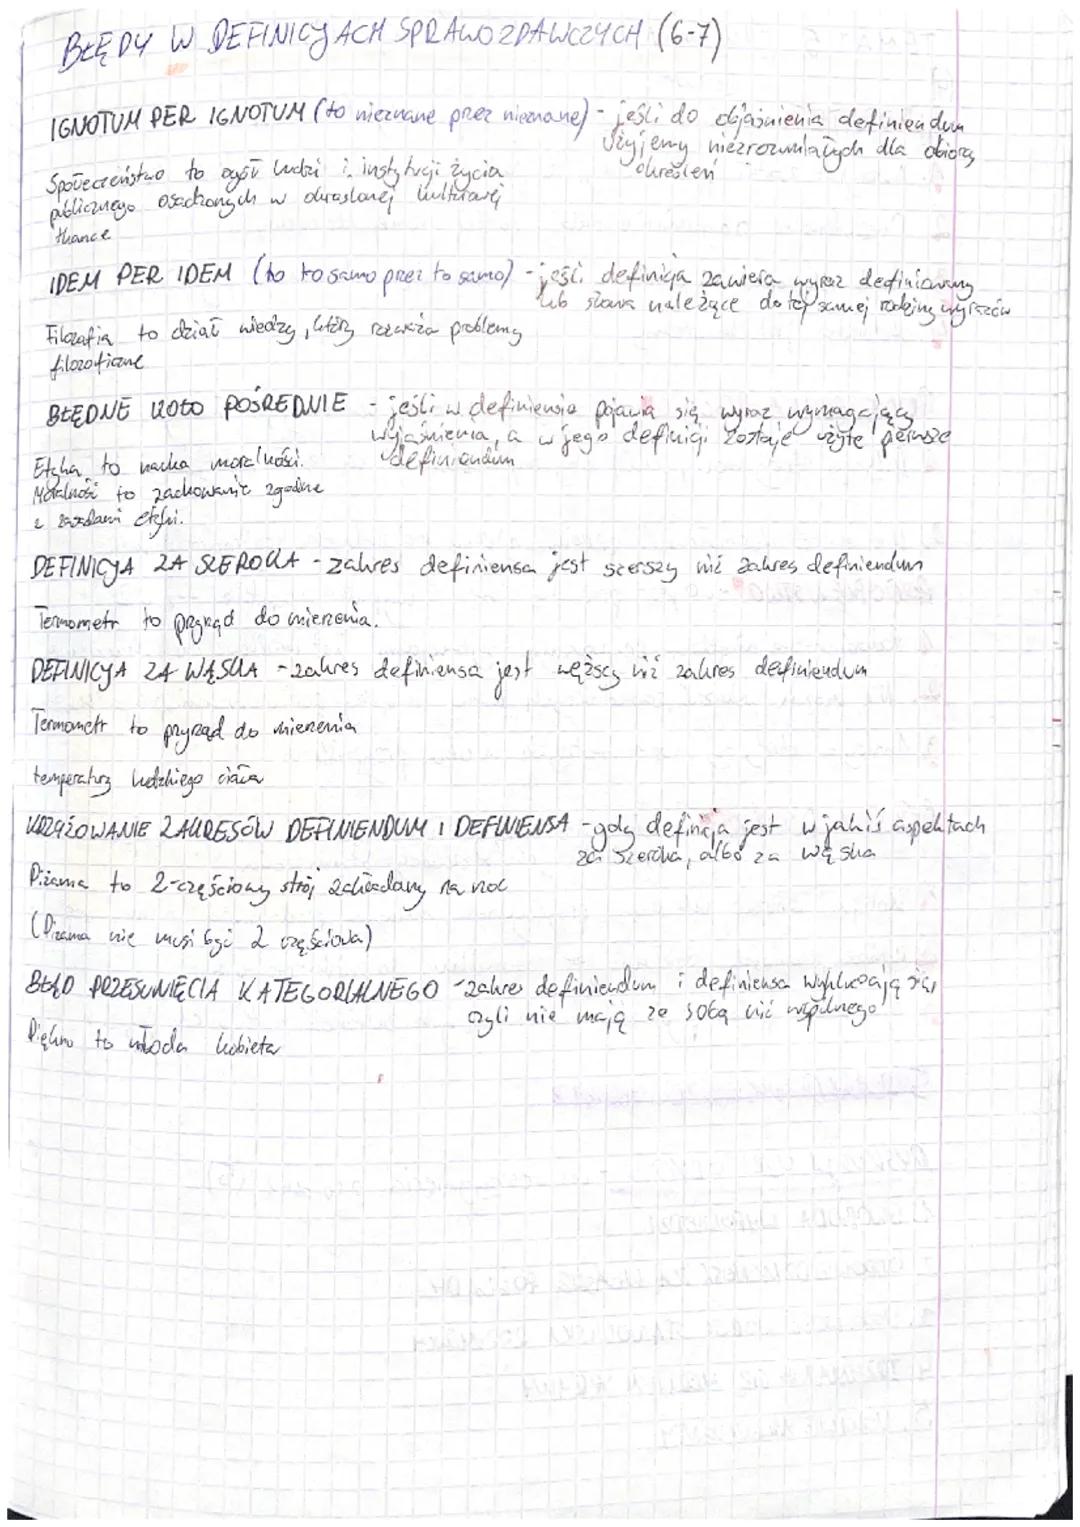 BŁĘDY W DEFINICJACH SPRAWOZDAWCZYCH (6-7)
IGNOTUM PER IGNOTUM (to nieznane przez nieznane) - jeśli do objaśnienia definiendum
użyjemy niezrozumiałych dla odbiorcy
określeń
Społeczeństwo to ogół ludzi i instytucji życia
publicznego osadzonych w określonej kulturowej
tkance
IDEM PER IDEM (to to samo przez to samo) - jeśli definicja zawiera wyraz definiowany
lub słowa należące do tej samej rodziny wyrazów
Filozofia to dział wiedzy, który rozważa problemy
filozoficzne
BŁĘDNE KOŁO POŚREDNIE - jeśli w definiensie pojawia się wyraz wymagający
wyjaśnienia, a w jego definicji zostaje użyte pierwsze
definiendum
Etyka to nauka moralności.
Moralność to zachowanie zgodne
z zasadami etyki.
DEFINICJA ZA SZEROKA - zakres definiensa jest szerszy niż zakres definiendum
Termometr to przyrząd do mierzenia.
DEFINICJA ZA WĄSKA - zakres definiensa jest węższy niż zakres definiendum
Termometr to przyrząd do mierzenia
temperatury ludzkiego ciała
KRZYŻOWANIE ZAKRESÓW DEFINIENDUM I DEFINIENSA - gdy definicja jest w jakiś aspektach
za szeroka, albo za wąska
Piżama to 2-częściowy strój zakładany na noc
(Piżama nie musi być 2 częściowa)
BŁĄD PRZESUNIĘCIA KATEGORIALNEGO - zakres definiendum i definiensa wykluczają się,
czyli nie mają ze sobą nic wspólnego
Piękno to młoda kobieta